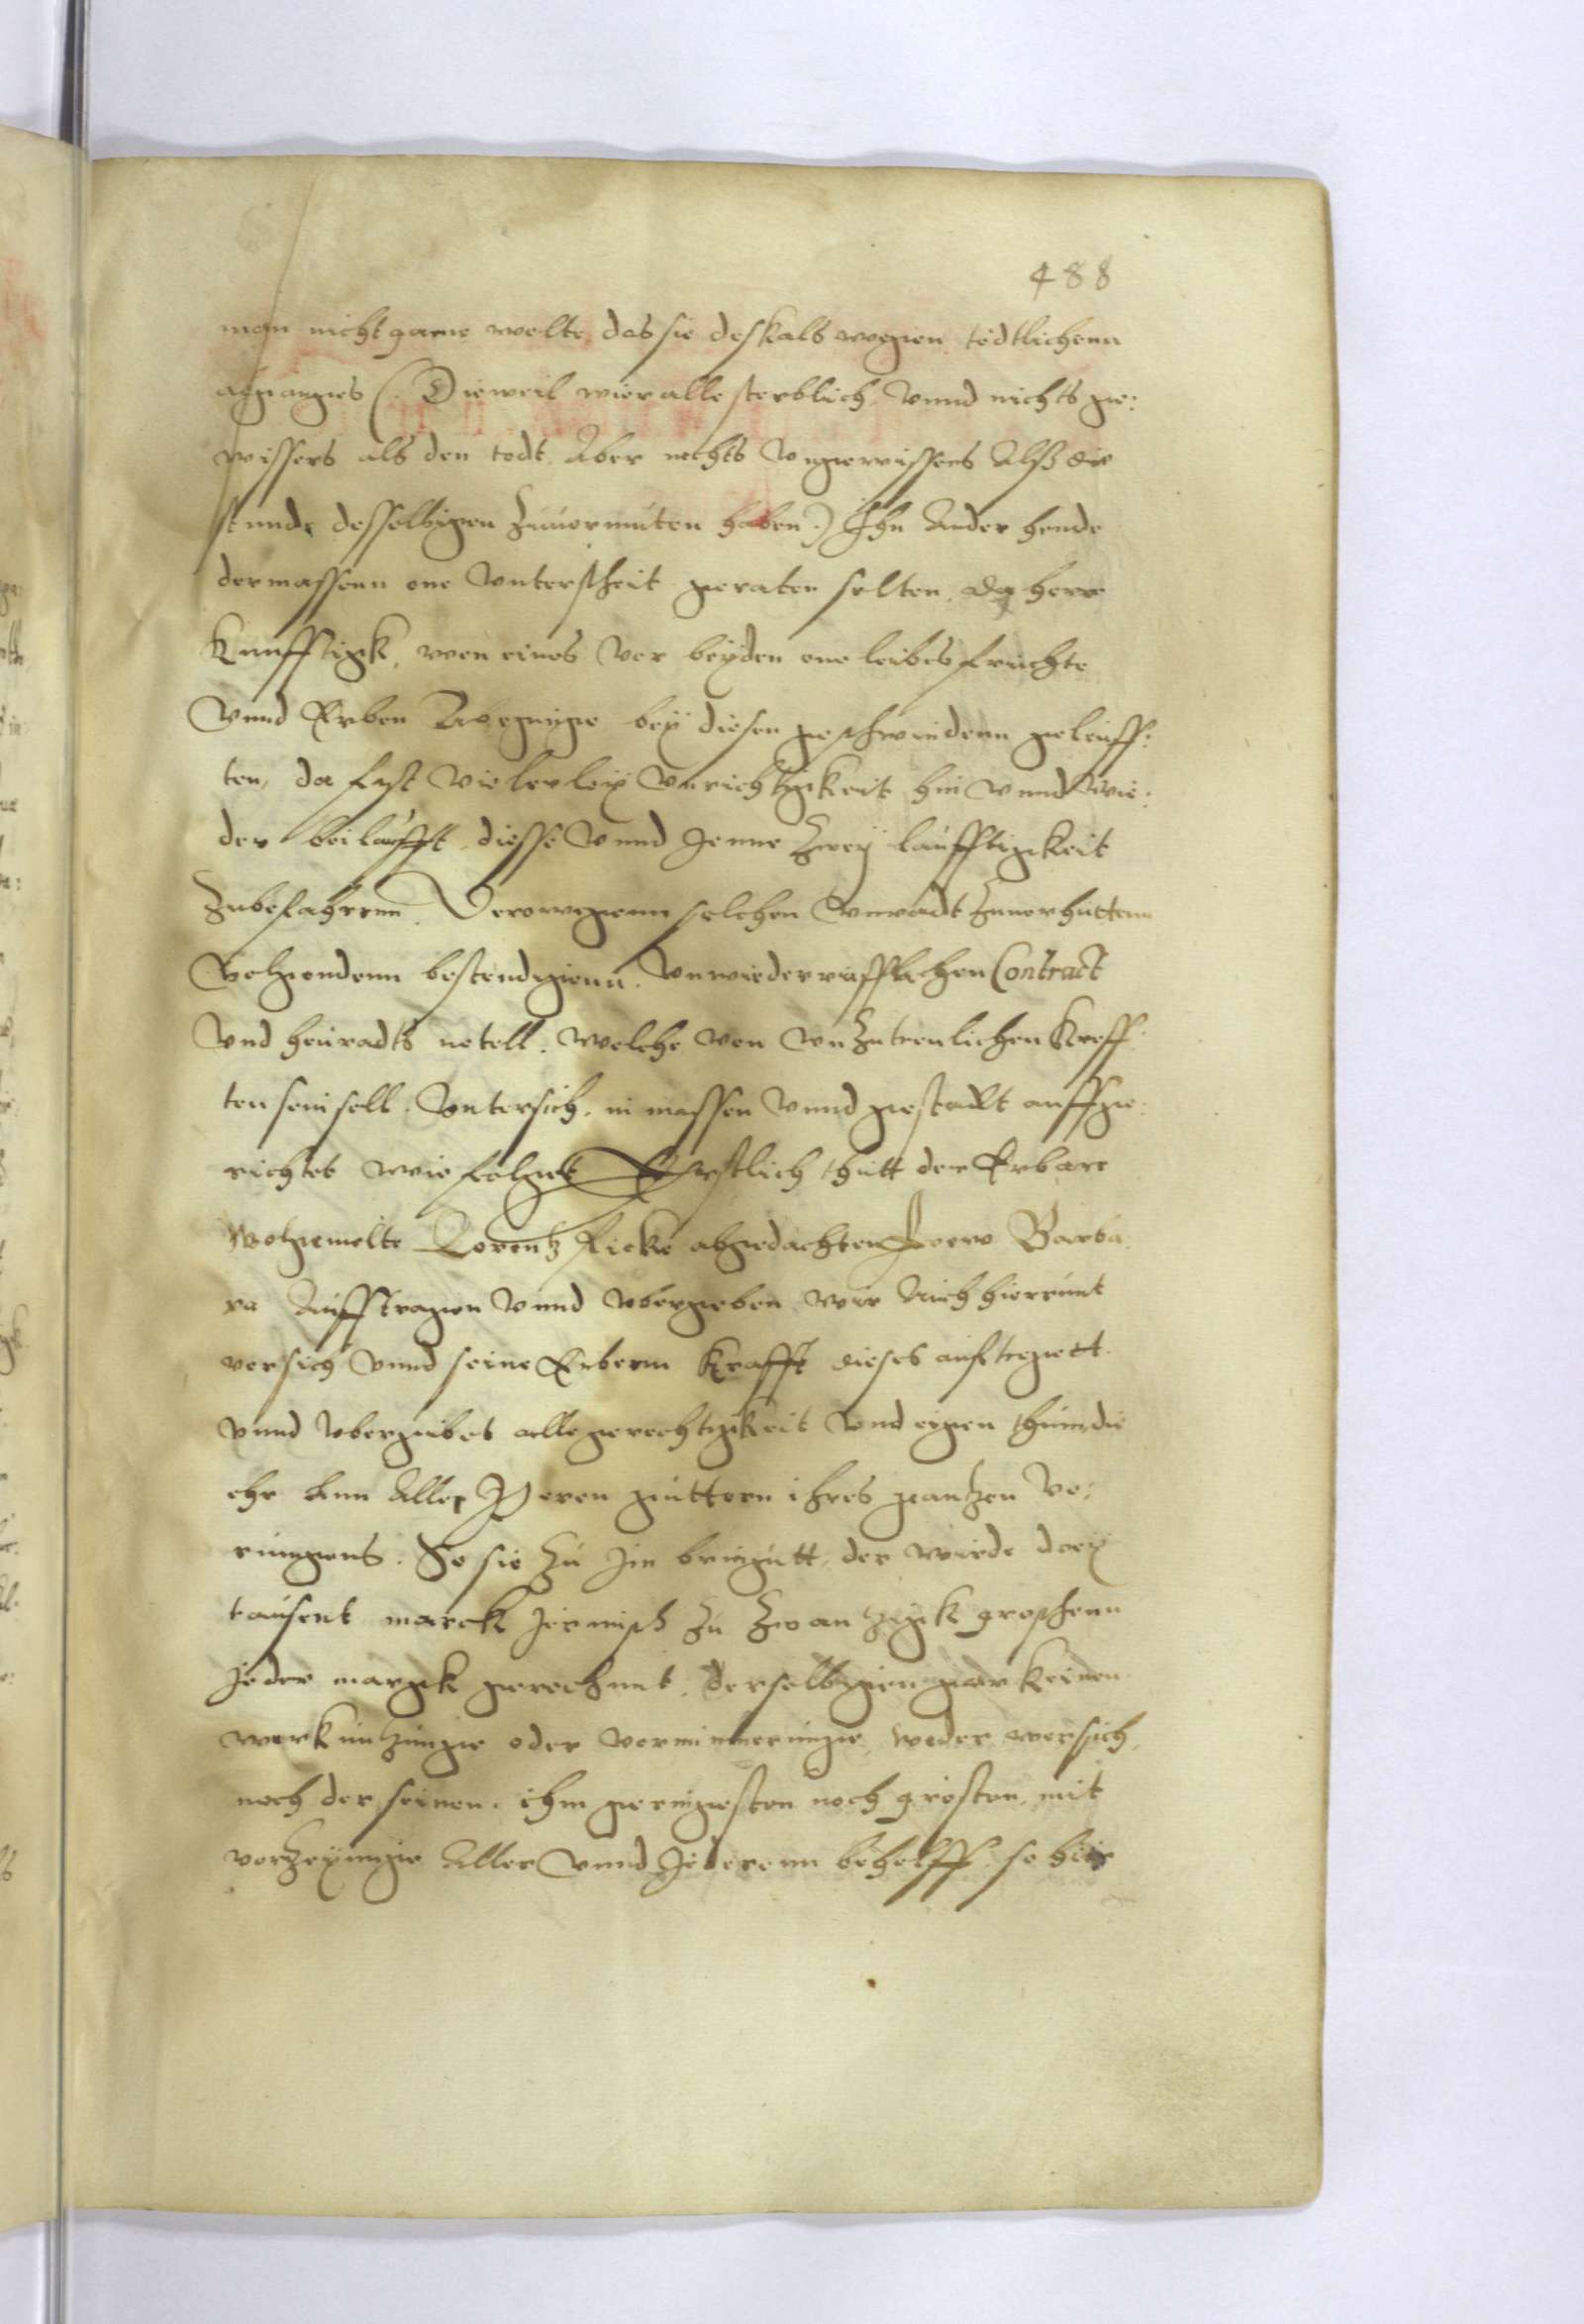 488
man nicht gerne wolte, das sie deshalb wegen tödtlichenn
abganges (. Dieweil wier alle sterblich, vnnd nichts ge:
wissers als den todt, Aber nichts vngewissers Alß die
stunde desselbigen zuuormuten haben.) Ihn Ander hende
dermassenn one vnterscheit geraten solten, da herr
Kunfftigk, wen eines vor beyden one leibes fruchte
vnnd Erben Abeginge bey diesen geschwindenn geleuff:
ten, da fast vielerley vnrichtigkeit hin vnnd wie:
der beileufft, diesse vnnd Jenne zwey leufftigkeit
zubefahrenn. Derowegenn solchen vnradt zuuorhuttenn
volgendenn bestendigenn, vnwiederrufflichen Contract
vnd heiradts notell, welche von vnzutrenlichen Kreff:
ten sein soll, vntersich, in massen vnnd gestaldt auffge:
richtet wie folget Erstlich thutt der Erbare
wolgemelte Lorentz Ficke obgedachten Froew Barba
ra Aufftragen vnnd vbergeben, wie Auch hiermit
vor sich vnnd seine Erbenn Krafft dieses aufftregett
vnnd vbergibet alle gerechtigkeit vnd eigenthum, die
ehr ann Allen Iheren guttern ihres gantzen Ve:
rmugens, So sie zu Jm bringett, der wirde drey
tausent marck zu zwantzigk groschenn
Jeder margk gerechnet, derselbigen gar keinen
verkurtzunge oder vorminnerunge, weder vor sich,
noch der seinen, ihm geringesten noch grösten, mit
vorzeyunge Aller vnnd Jederenn behelff, so hier